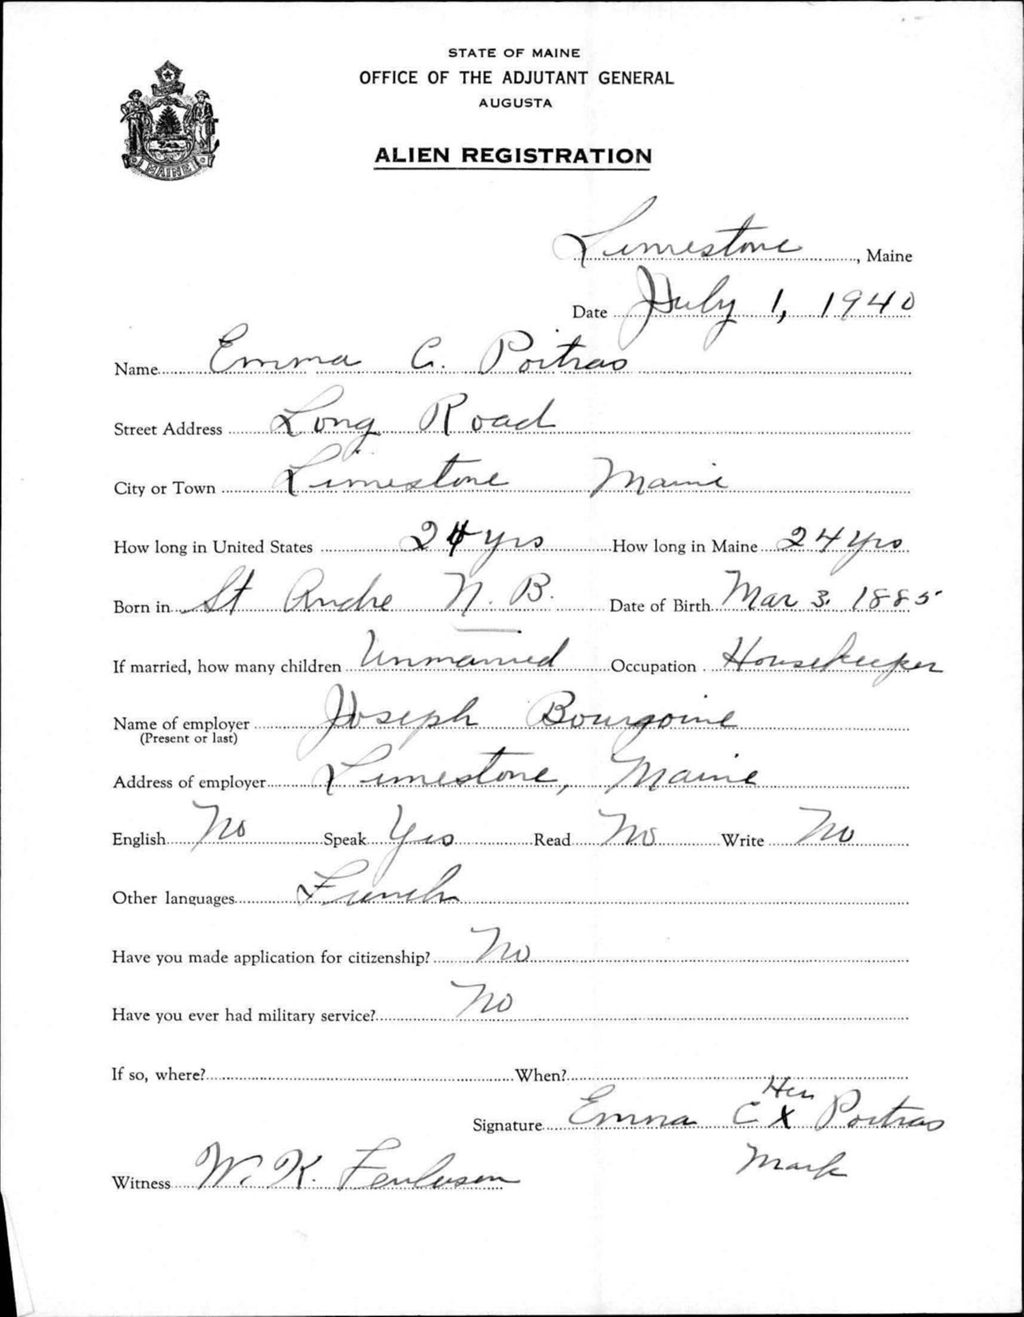 STATE OF MAINE
OFFICE OF THE ADJUTANT GENERAL
AUGUSTA
ALIEN REGISTRATION
MAINE
Limestone, Maine
Date July 1, 1940
Name Emma C. Poitras
Street Address Long Road
City or Town Limestone Maine
How long in United States 24 yrs How long in Maine 24 yrs
Born in St Andre N. B. Date of Birth Mar 3, 1885
If married, how many children Unmarried Occupation Housekeeper
Name of employer Joseph Bourgoine
(Present or last)
Address of employer Limestone, Maine
English No Speak Yes Read No Write No
Other languages French
Have you made application for citizenship? No
Have you ever had military service? No
If so, where? When?
Her
Signature Emma C X Poitras
Mark
Witness W. K.